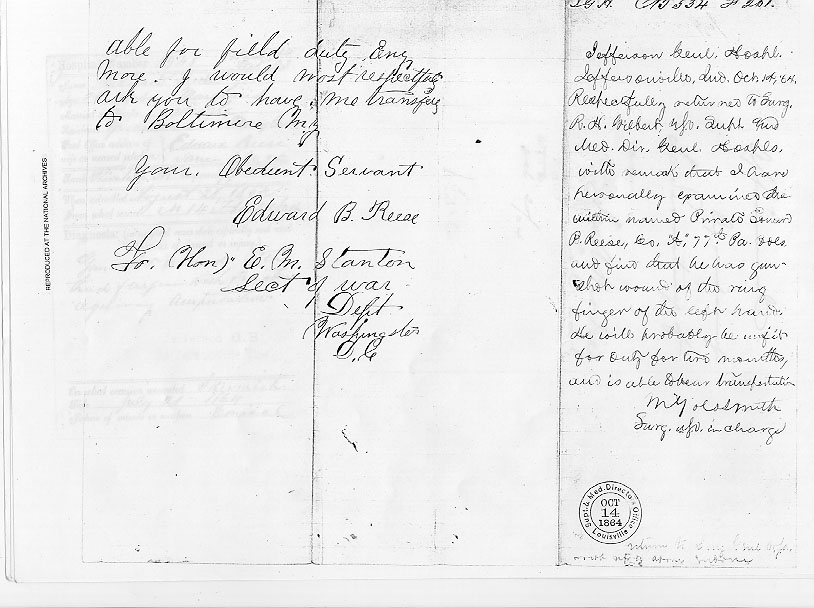 able for field duty Eny
more. I would most respectfuly
ask you to have me transfered
to Boltimore Md
Your. Obedient Servant
Edward B. Reese
To. (Hon) E. M. Stanton
Sect of war
Dept
Washington
D.C
REPRODUCED AT THE NATIONAL ARCHIVES
Jefferson Genl. Hospl.
Jeffersonville, Ind. Oct 14, 64.
Respectfully returned to Surg.
R. H. Gilbert, U.S.V. Supt. and
Med. Dir. Genl. Hospls.
with remark that I have
personally examined the
within named Private Edward
B. Reese, Co. "A," 77th Pa. Vols
and find that he has gun-
shot wound of the ring
finger of the left hand.
He will probably be unfit
for duty for two months,
and is able to bear transportation
M Goldsmith
Surg. U.S.V. in charge
Supt. & Med. Director's Office
OCT
14
1864
Louisville